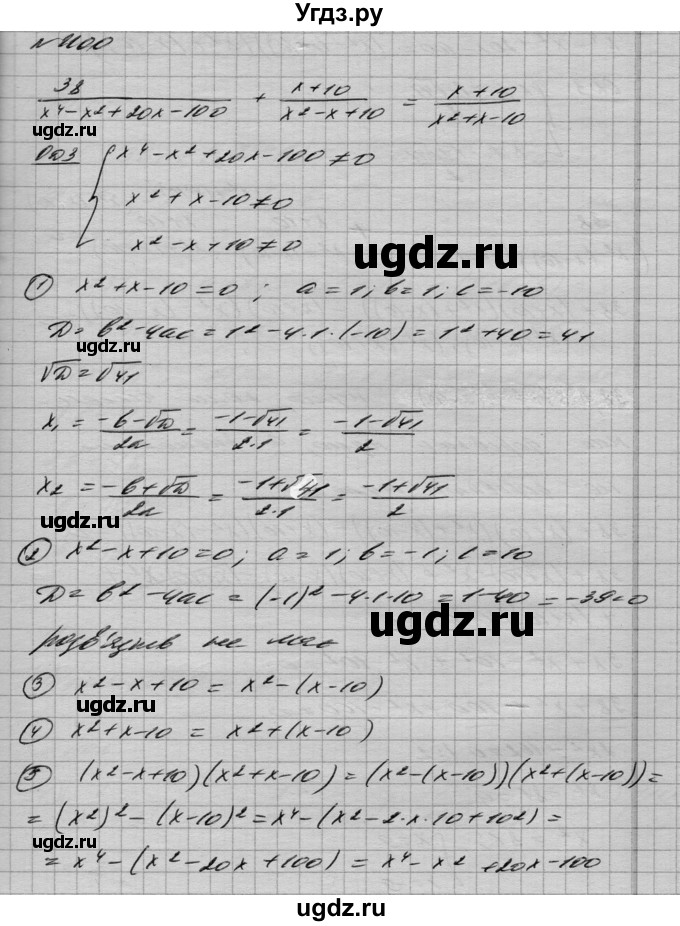 Угдз.ру
№1100
38/(x⁴-x²+20x-100) + (x+10)/(x²-x+10) = (x+10)/(x²+x-10)
ugdz.ru
ОДЗ { x⁴-x²+20x-100≠0
x²+x-10≠0
x²-x+10≠0
ugdz.ru
① x²+x-10=0; a=1; b=1; c=-10
D=b²-4ac=1²-4·1·(-10)=1²+40=41
ugdz.ru
√D=√41
x₁=(-b-√D)/2a=(-1-√41)/(2·1)=(-1-√41)/2
x₂=(-b+√D)/2a=(-1+√41)/(2·1)=(-1+√41)/2
ugdz.ru
② x²-x+10=0; a=1; b=-1; c=10
D=b²-4ac=(-1)²-4·1·10=1-40=-39<0
ugdz.ru
розв'язків не має
③ x²-x+10=x²-(x-10)
ugdz.ru
④ x²+x-10=x²+(x-10)
⑤ (x²-x+10)(x²+x-10)=(x²-(x-10))(x²+(x-10))=
=(x²)²-(x-10)²=x⁴-(x²-2·x·10+10²)=
ugdz.ru
=x⁴-(x²-20x+100)=x⁴-x²+20x-100
ugdz.ru